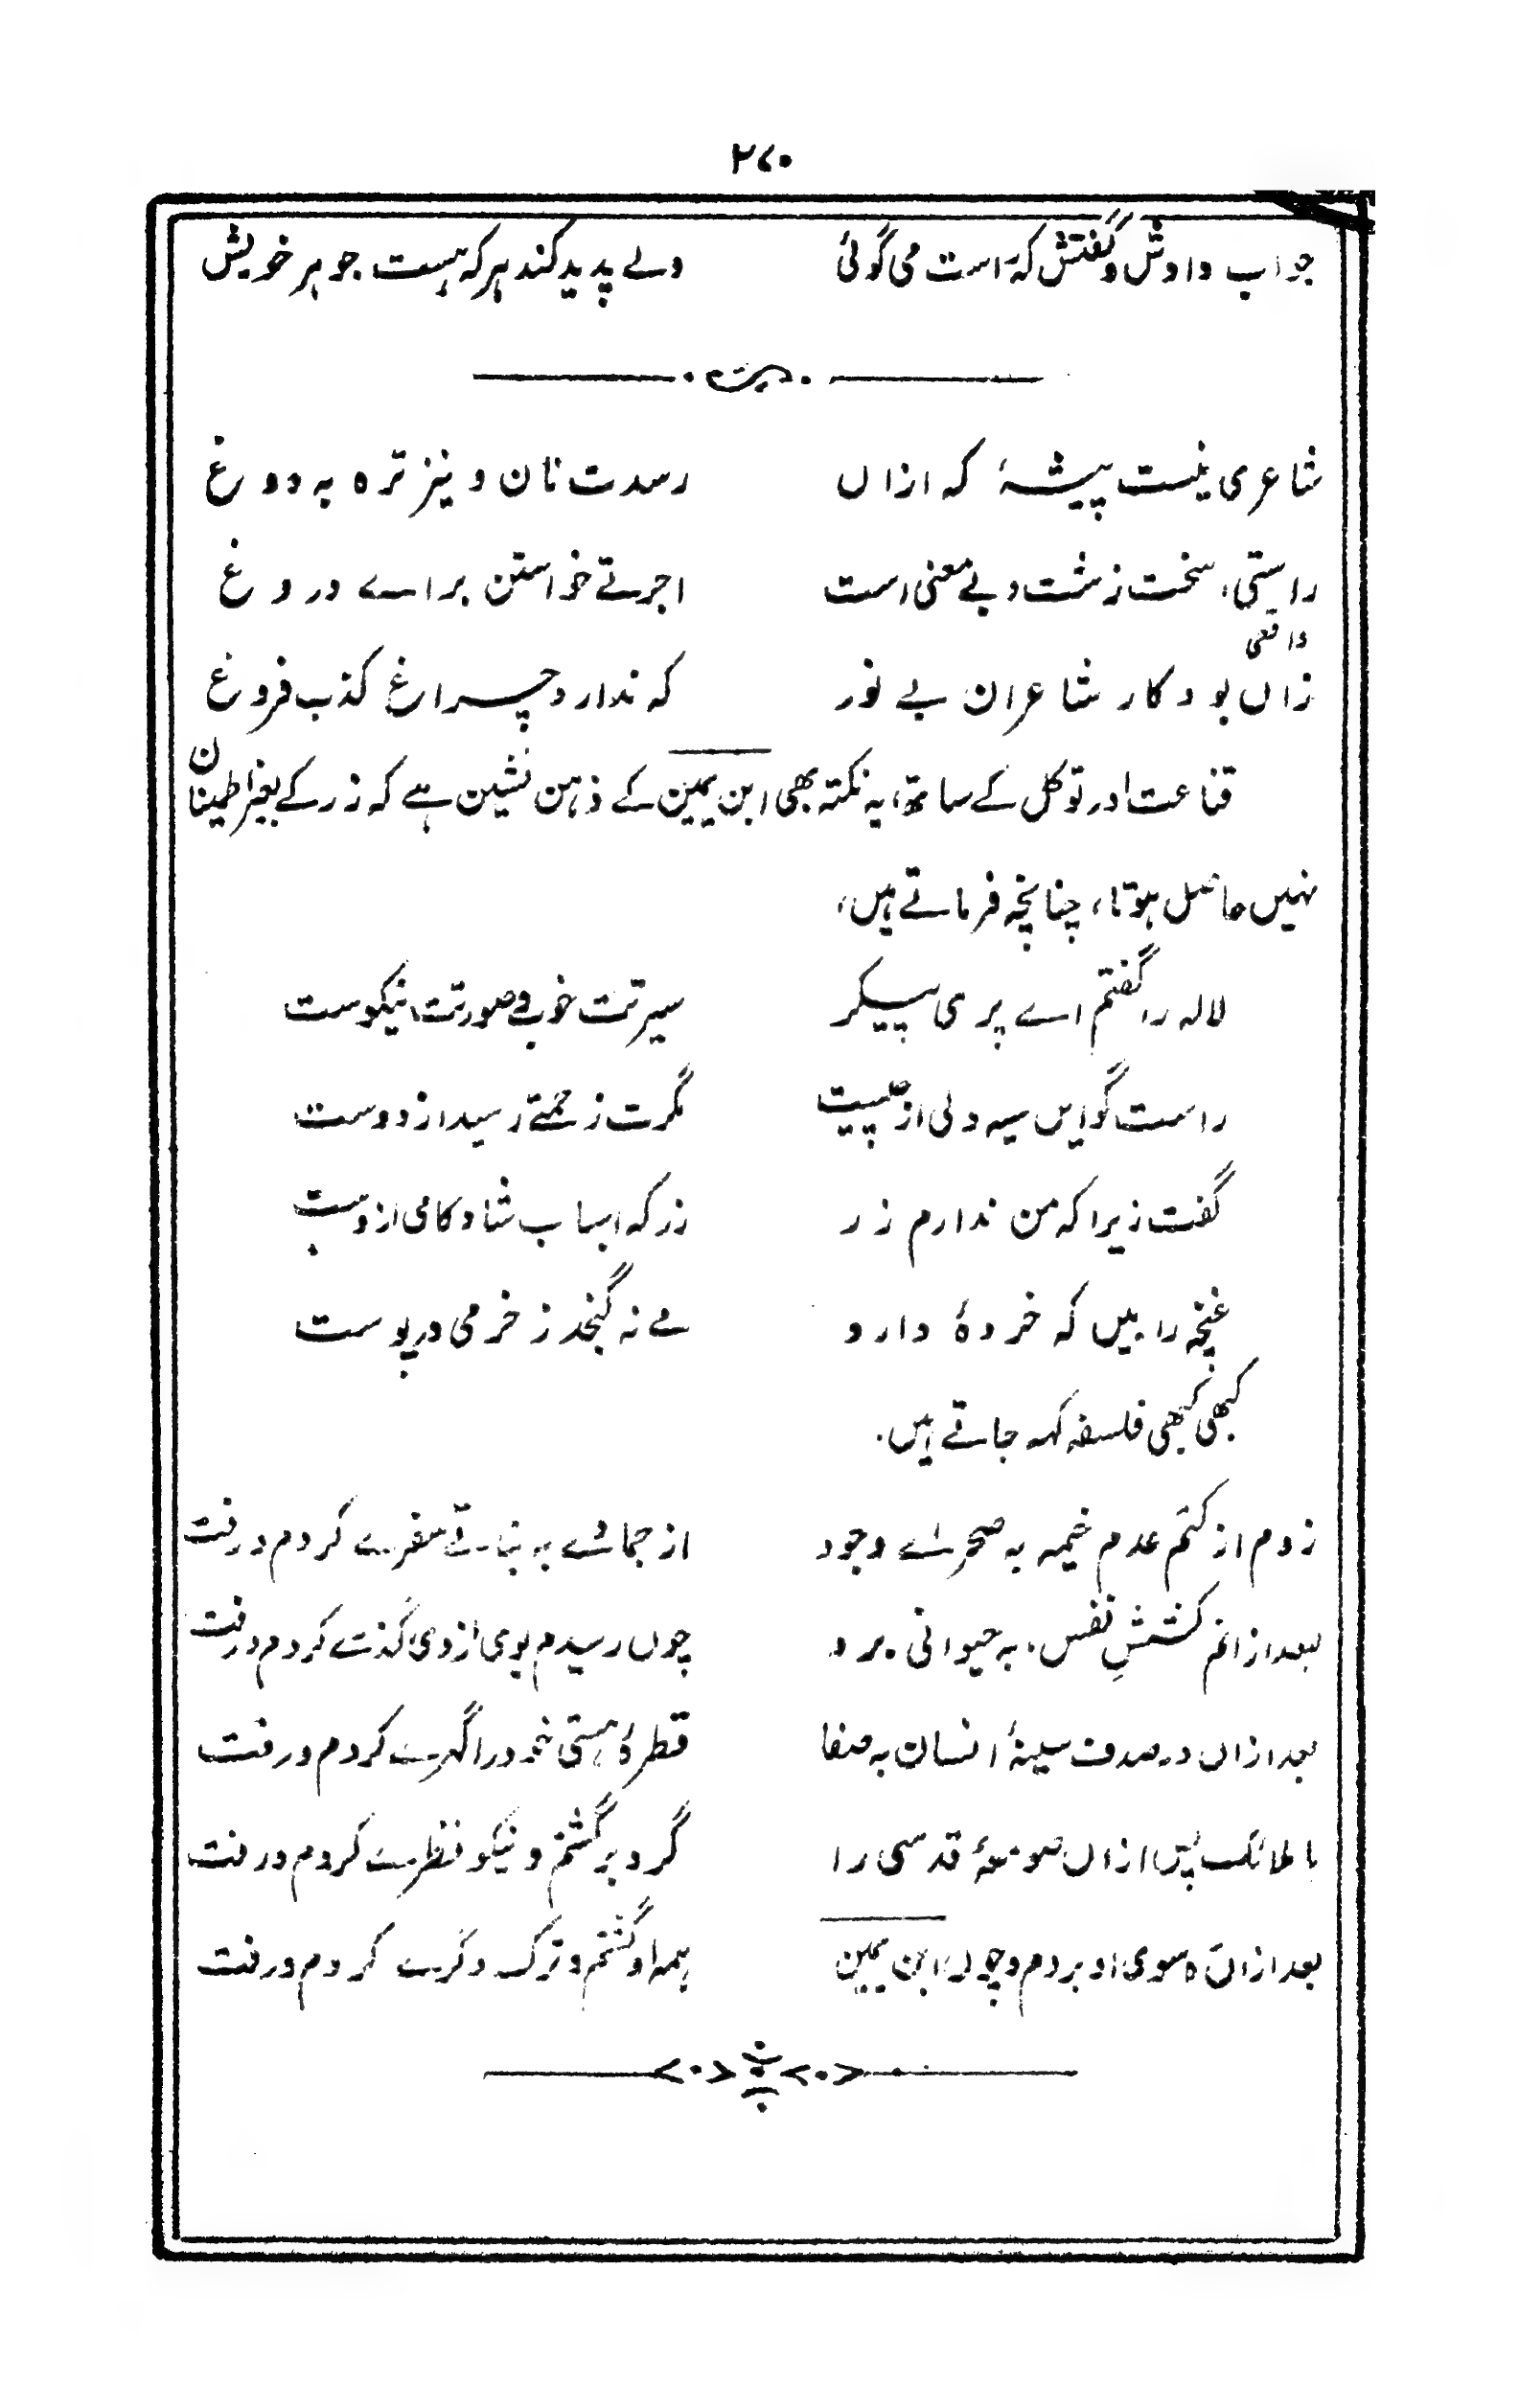 ۲۷۰
جواب دادش و گفتش کہ راست می گوئی ولے پدید کند ہر کہ ہست جوہر خویش
شاعری نیست پیشۂ کہ ازاں رسدت نان و نیز ترہ بہ دوغ
راستی، سخت زشت و بے معنی است اجرتے خواستن برائے دروغ
واقعی
زاں بود کار شاعران بے نور کہ ندارد چراغ کذب فروغ
قناعت اور توکل کے ساتھ، یہ نکتہ بھی ابن یمین کے ذہن نشین ہے کہ زر کے بغیر اطمینان
نہیں حاصل ہوتا، چنانچہ فرماتے ہیں،
لالہ را گفتم اے پری پیکر سیرتت خوب و صورتت نیکوست
راست گو ایں سیہ دلی از چیست مگرت زحمتے رسید از دوست
گفت زیرا کہ من ندارم زر زر کہ اسباب شادکامی ازوست
غنچہ را بیں کہ خردۂ دارد مے نہ گنجد ز خرمی در پوست
کبھی کبھی فلسفہ کہہ جاتے ہیں.
زدم از کتم عدم خیمہ بہ صحرائے وجود از جمادے بہ نباتے سفرے کردم و رفت
بعد ازانم کششِ نفس، بہ حیوانی برد چوں رسیدم بوی ازوی گذرے کردم و رفت
بعد ازاں در صدف سینۂ انسان بہ صفا قطرۂ ہستی خود را گہرے کردم و رفت
با ملائک پس ازاں صومعۂ قدسی را گرد بر گشتم و نیکو نظرے کردم و رفت
بعد ازاں رہ سوی او بردم و چوں ابن یمین ہمہ او گشتم و ترک دگرے کردم و رفت